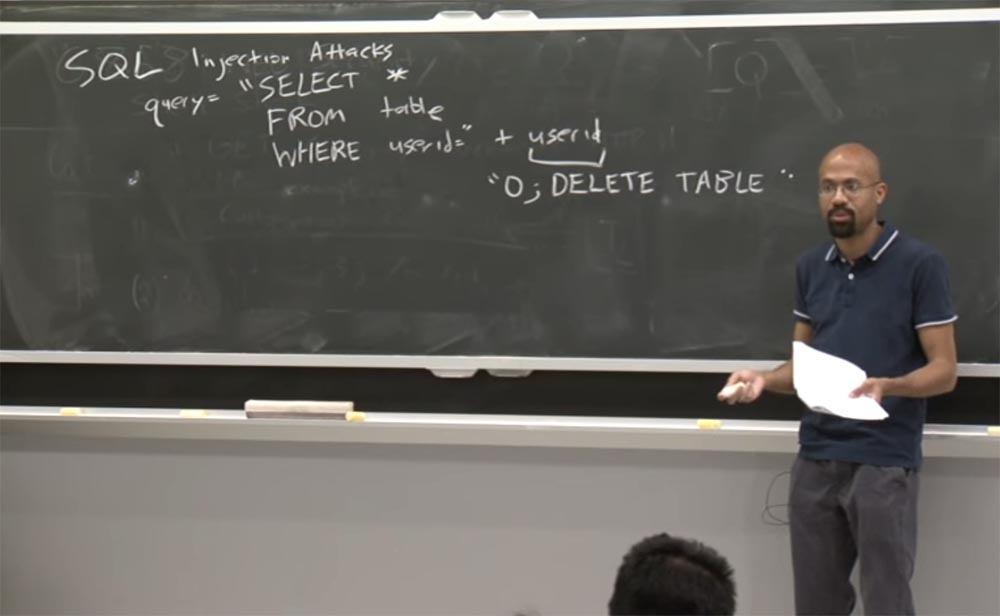 SQL Injection Attacks
query= "SELECT *
FROM table
WHERE userid=" + userid
"0; DELETE TABLE "